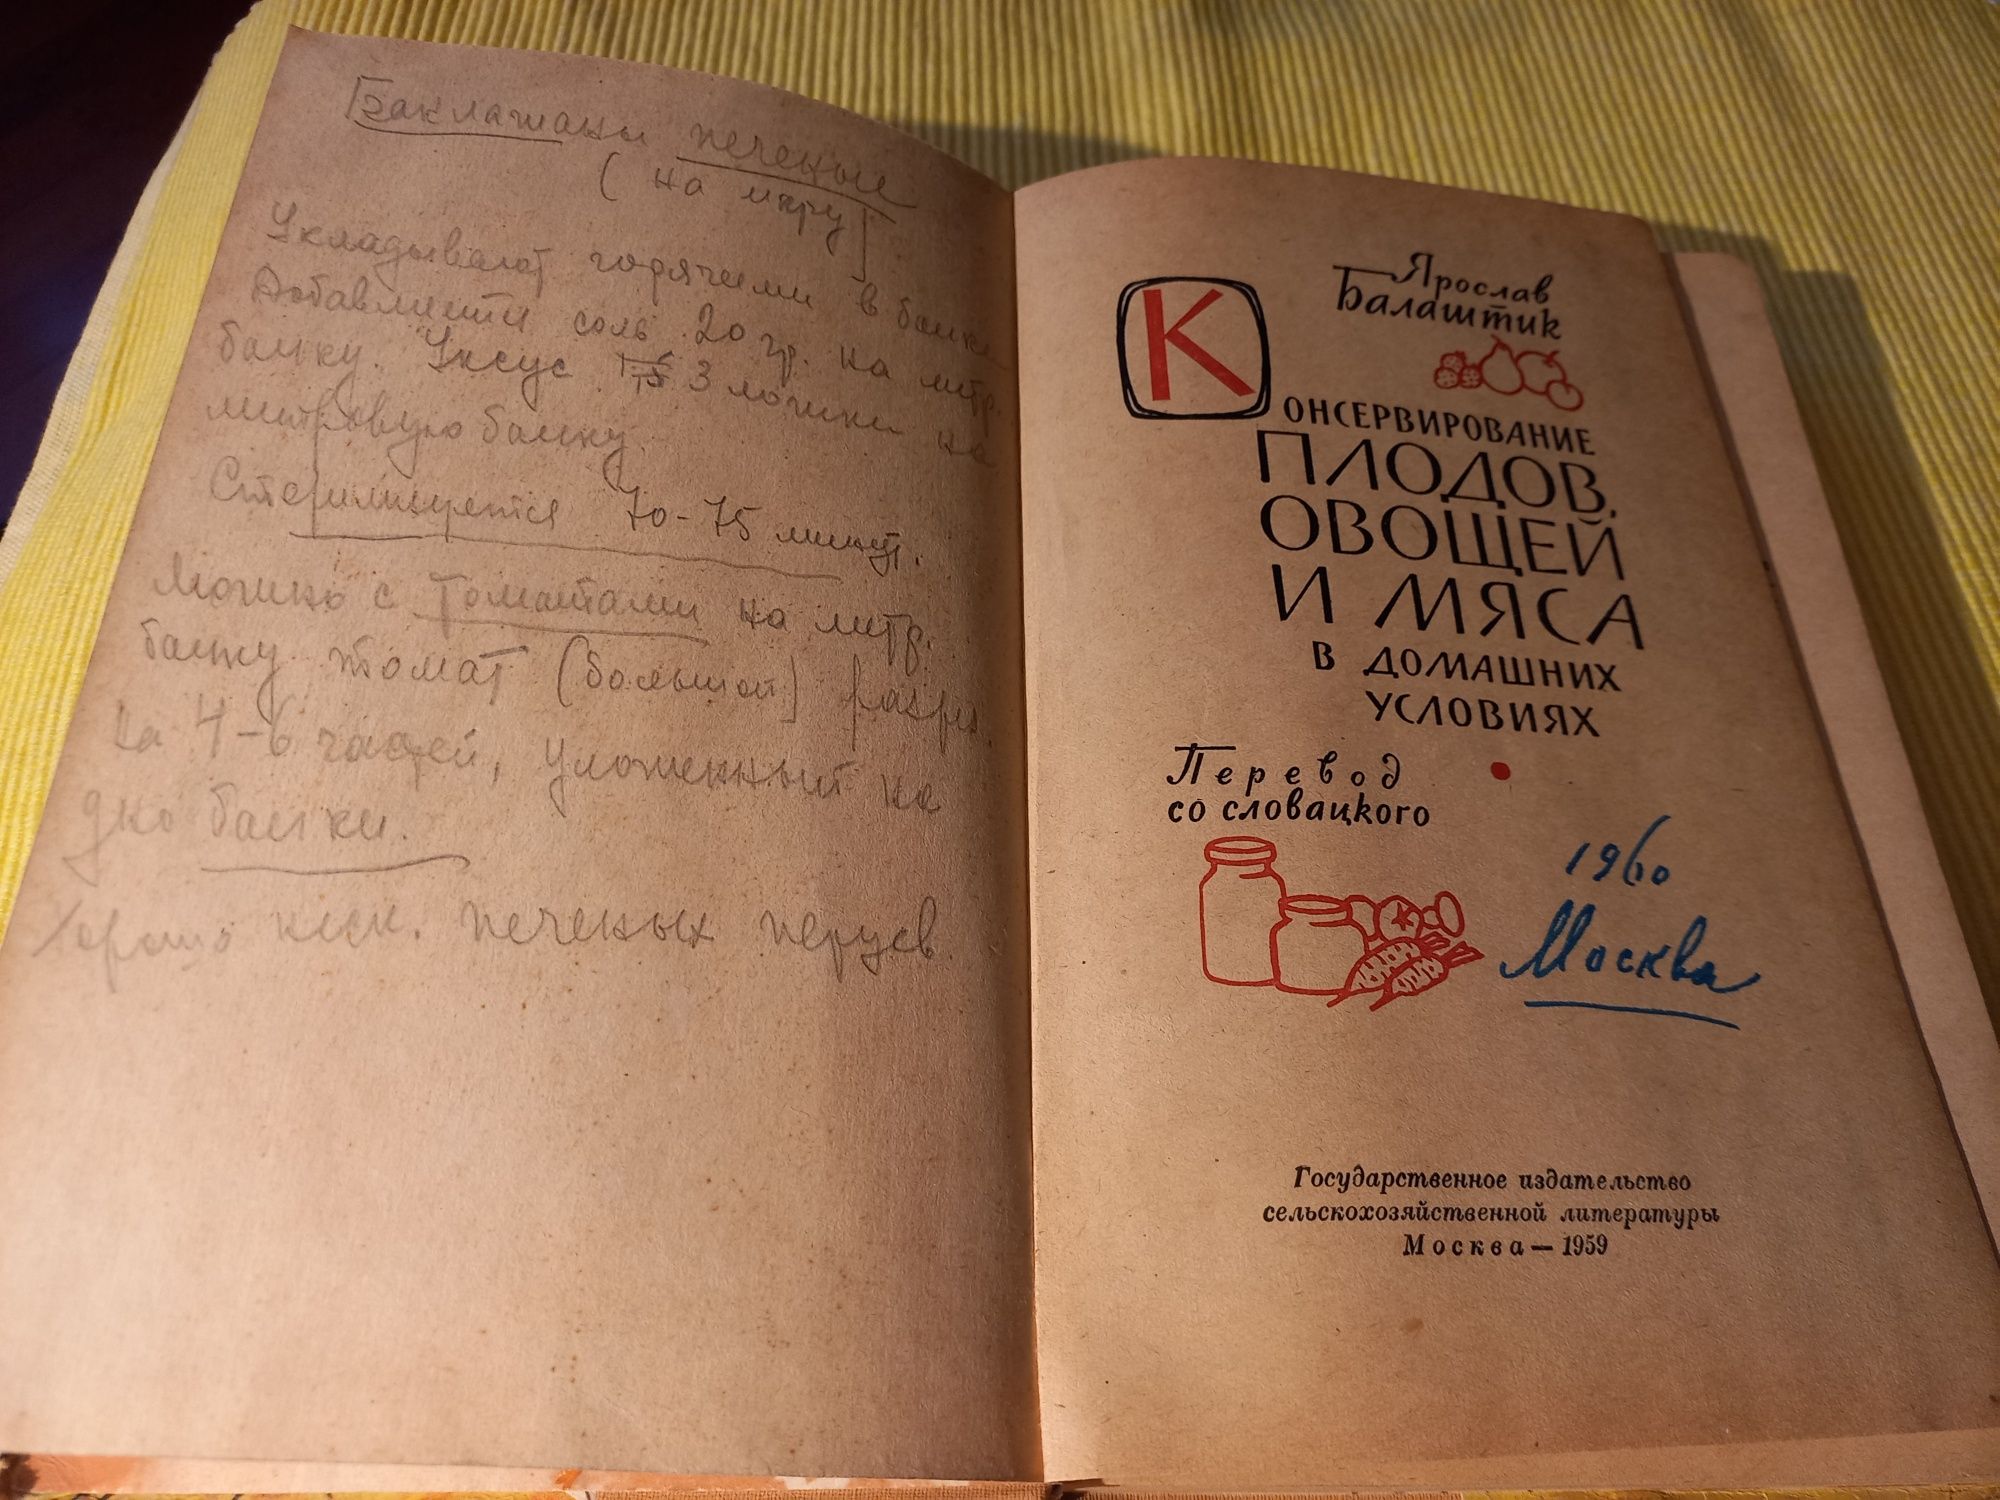 Баклажаны печеные
(на икру)
Укладывают горячими в банки
Добавляется соль 20 гр. на литр.
банку. Уксус 3 ложки на
литровую банку.
Стерилизуется 70-75 минут.
Можно с томатами на литр.
банку томат (большой) разрез.
на 4-6 частей, уложенный на
дно банки.
Хорошо неск. печеных перцев.
Ярослав
Балаштик
КОНСЕРВИРОВАНИЕ
ПЛОДОВ,
ОВОЩЕЙ
И МЯСА
В ДОМАШНИХ
УСЛОВИЯХ
Перевод
со словацкого
1960
Москва
Государственное издательство
сельскохозяйственной литературы
Москва — 1959